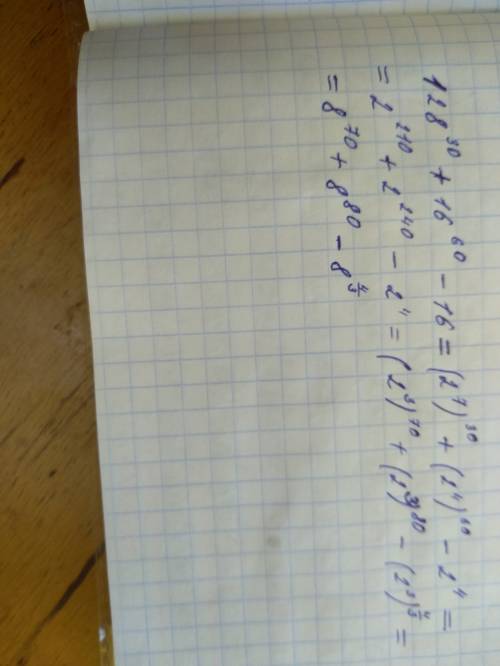 128³⁰ + 16⁶⁰ − 16 = (2⁷)³⁰ + (2⁴)⁶⁰ − 2⁴ =
= 2²¹⁰ + 2²⁴⁰ − 2⁴ = (2³)⁷⁰ + (2³)⁸⁰ − (2³)^(4/3) =
= 8⁷⁰ + 8⁸⁰ − 8^(4/3)